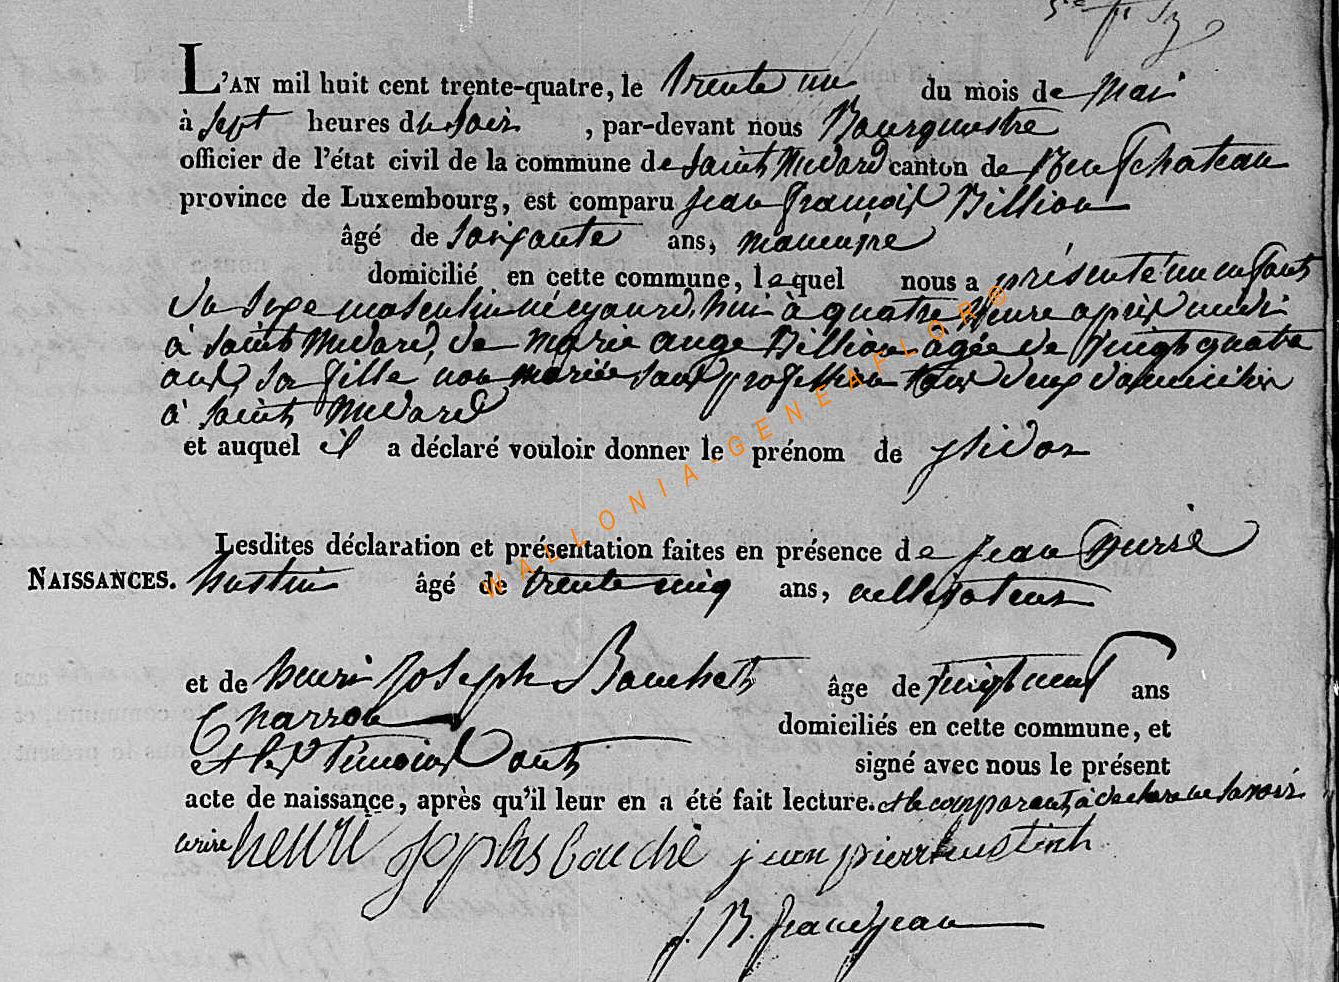 L'AN mil huit cent trente-quatre, le trente un du mois de Mai
à sept heures du soir , par-devant nous Bourguestre
officier de l'état civil de la commune de Saint Medard canton de Neufchateau
province de Luxembourg, est comparu jean françois Billion
âgé de soixante ans, maneuvre
domicilié en cette commune, lequel nous a présenté un enfant
du sexe masculin né cejourd'hui à quatre heure après midi
à Saint Medard, de Marie ange Billion agée de vingt quatre
ans, sa fille non mariée sans profession tous deux domiciliés
à Saint Medard
et auquel il a déclaré vouloir donner le prénom de isidor
Lesdites déclaration et présentation faites en présence de jean pierre
NAISSANCES. hustin âgé de trente cinq ans, cultivateur
et de henri joseph Bauchet âge de vingt neuf ans
Charron domiciliés en cette commune, et
et les témoins ont signé avec nous le présent
acte de naissance, après qu'il leur en a été fait lecture. et le comparant à déclaré ne savoir
écrire henri josephs bouché jean pierre hustinh
j. B. franсjean
WALLONIA-GENEAFLOR®